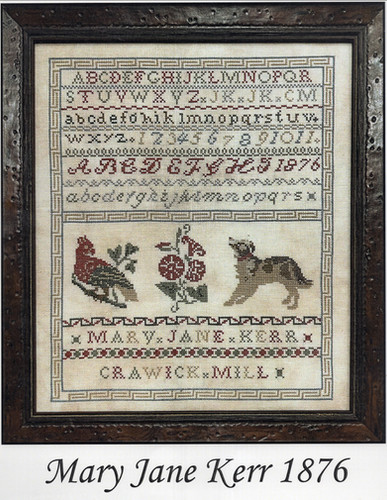 ABCDEFGHIJKLMNOPQR
STUVWXYZ×JK×JK×CM
abcdefghiklmnopqrstuv×
wxyz×1234567891011
ABCDEFGHI 1876
abcdefghijklmnopqrs×
MARY×JANE×KERR
CRAWICK×MILL
Mary Jane Kerr 1876